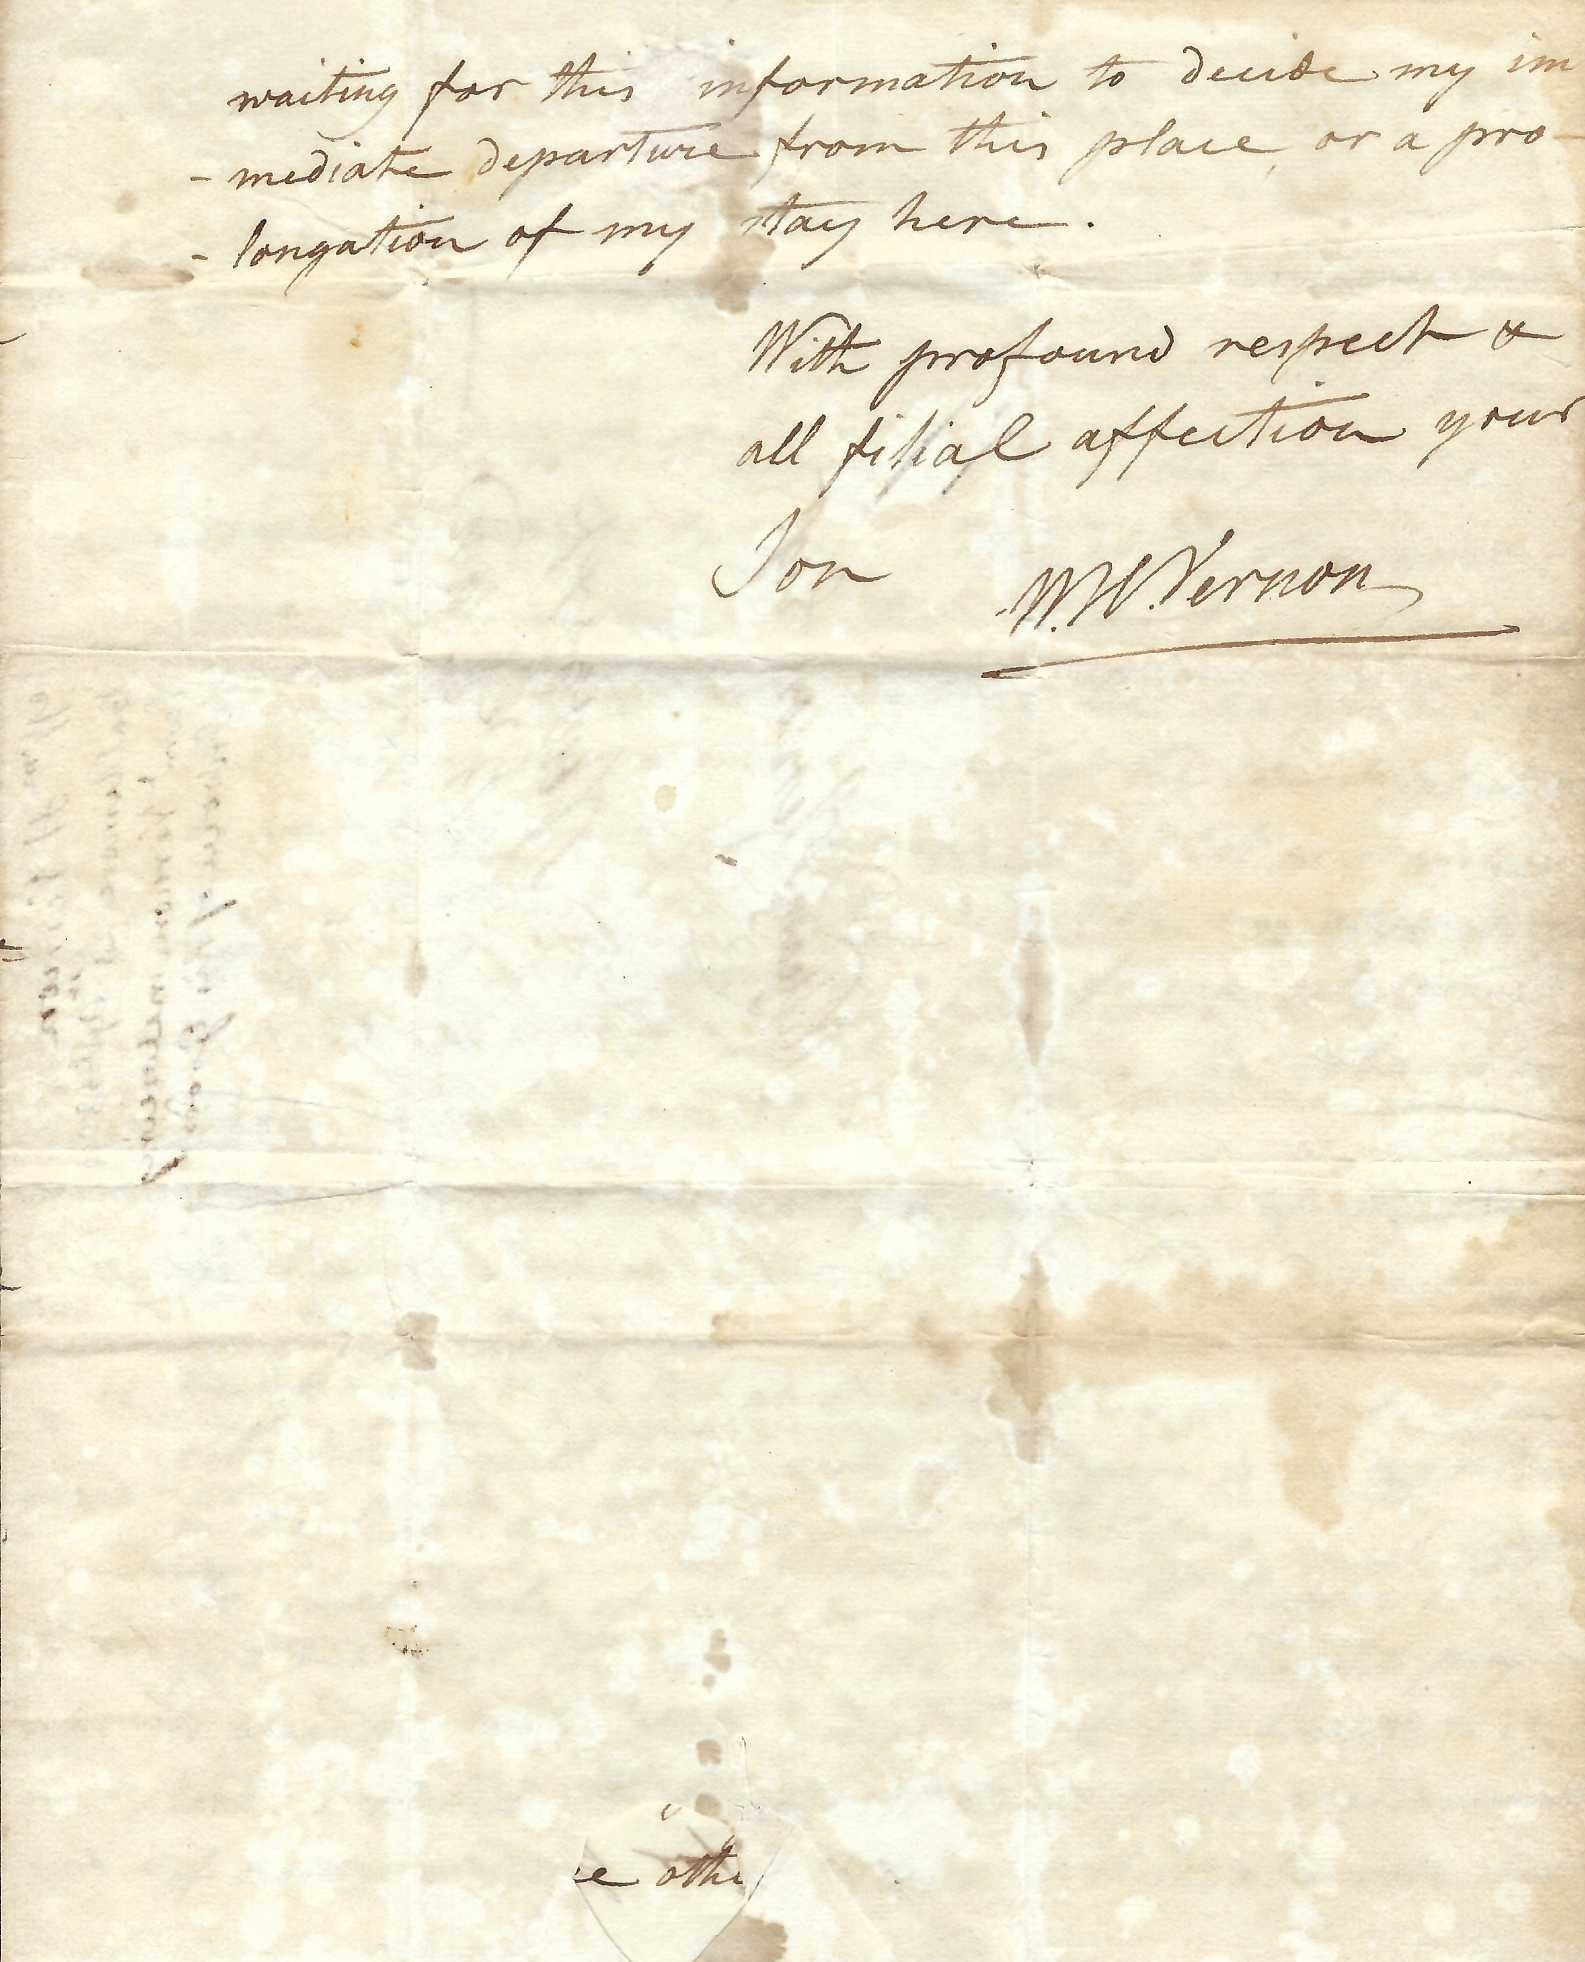 waiting for this information to decide my im
- mediate departure from this place, or a pro-
- longation of my stay here.
With profound respect &
all filial affection your
Son W. H. Vernon
e othe